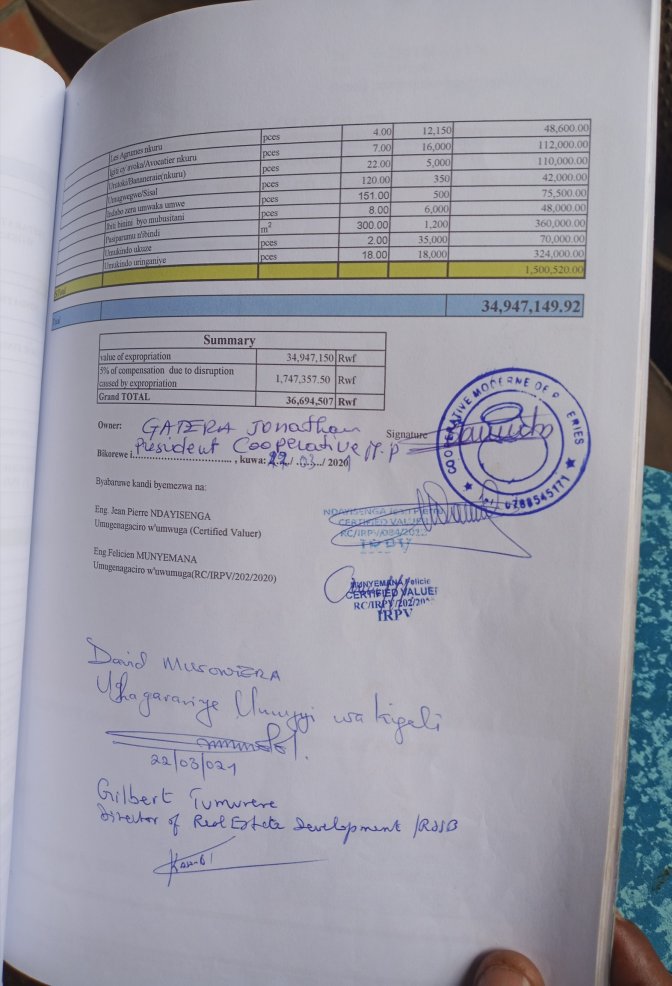 Les Agrumes nkuru pces 4.00 12,150 48,600.00
Igiti cy'avoka/Avocatier nkuru pces 7.00 16,000 112,000.00
Urutoki/Bananeraie(nkuru) pces 22.00 5,000 110,000.00
Umugwegwe/Sisal pces 120.00 350 42,000.00
Indabo zera umwaka umwe pces 151.00 500 75,500.00
Ibiti binini byo mubusitani pces 8.00 6,000 48,000.00
Pasiparumu n'ibindi m² 300.00 1,200 360,000.00
Umukindo ukuze pces 2.00 35,000 70,000.00
Umukindo uringaniye pces 18.00 18,000 324,000.00
1,500,520.00
34,947,149.92
Summary
value of expropriation 34,947,150 Rwf
5% of compensation due to disruption
caused by expropriation 1,747,357.50 Rwf
Grand TOTAL 36,694,507 Rwf
Owner: GATERA Jonathan
Signature
President Cooperative M.P
Bikorewe i.............................. , kuwa: 22/03/2021
COOPERATIVE MODERNE DE
0788545171
Byabaruwe kandi byemezwa na:
Eng. Jean Pierre NDAYISENGA
Umugenagaciro w'umwuga (Certified Valuer)
NDAYISENGA Jean Pierre
CERTIFIED VALUER
RC/IRPV/084/2012
Eng.Felicien MUNYEMANA
Umugenagaciro w'uwumuga(RC/IRPV/202/2020)
MUNYEMANA Felicie
CERTIFIED VALUER
RC/IRPV/202/20
IRPV
David MUSONERA
Uhagarariye Umujyi wa Kigali
22/03/021
Gilbert Tumurere
Director of Real Estate Development /RSSB